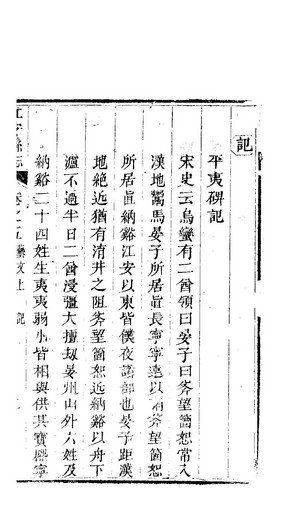 記
平夷碑記
宋史云烏蠻有二酋領曰晏子曰斧望箇恕常入
漢地鬻馬晏子所居直長寧寧遠以南斧望箇恕
所居直納谿江安以東皆僕夜諸部也晏子距漢
地絶近猶有淯井之阻斧望箇恕近納谿以舟下
瀘不過半日二酋浸彊大擅劫晏州山外六姓及
納谿二十四姓生夷夷弱小皆相與供其寶膠寧
江安縣志 卷之五藝文上 記